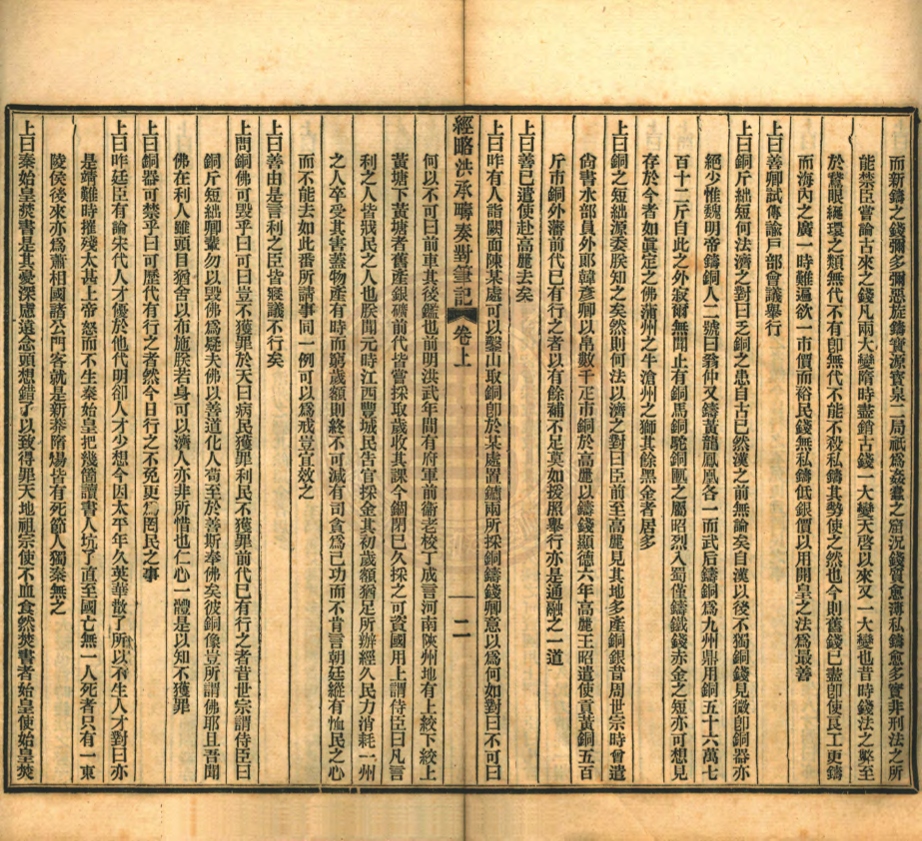 而新鑄之錢彌多彌惡旋鑄寶源寶泉二局祇爲姦蠹之窟況錢質愈薄私鑄愈多實非刑法之所
能禁臣嘗論古來之錢凡兩大變隋時盡銷古錢一大變天啓以來又一大變也昔時錢法之弊至
於鵞眼綖環之類無代不有卽無代不能不殺私鑄其勢使之然也今則舊錢已盡卽使良工更鑄
而海內之廣一時難遍欲一市價而裕民錢無私鑄低銀價以用開皇之法爲最善
上曰善卿試傳諭戶部會議舉行
上曰銅斤絀短何法濟之對曰乏銅之患自古已然漢之前無論矣自漢以後不獨銅錢見微卽銅器亦
絕少惟魏明帝鑄銅人二號曰翁仲又鑄黃龍鳳凰各一而武后鑄銅爲九州鼎用銅五十六萬七
百十二斤自此之外寂爾無聞止有銅馬銅駝銅匭之屬昭烈入蜀僅鑄鐵錢赤金之短亦可想見
存於今者如眞定之佛蒲州之牛滄州之獅其餘黑金者居多
上曰銅之短絀源委朕知之矣然則何法以濟之對曰臣前至高麗見其地多產銅銀昔周世宗時曾遣
尙書水部員外郎韓彥卿以帛數千疋市銅於高麗以鑄錢顯德六年高麗王昭遣使貢黃銅五百
斤市銅外藩前代已有行之者以有餘補不足莫如援照舉行亦是通融之一道
上曰善已遣使赴高麗去矣
上曰昨有人詣闕而陳某處可以鑿山取銅卽於某處置鑪兩所採銅鑄錢卿意以爲何如對曰不可曰
經略洪承疇奏對筆記 卷上 二
何以不可曰前車其後鑑也前明洪武年間有府軍前衞老校丁成言河南陝州地有上絞下絞上
黃塘下黃塘者舊產銀礦前代皆嘗採取歲收其課今錮閉已久採之可資國用上謂侍臣曰凡言
利之人皆戕民之人也朕聞元時江西豐城民告官採金其初歲額猶足所辦經久民力消耗一州
之人卒受其害蓋物產有時而窮歲額則終不可減有司貪爲己功而不肯言朝廷縱有恤民之心
而不能去如此番所請事同一例可以爲戒豈宜效之
上曰善由是言利之臣皆寢議不行矣
上問銅佛可毀乎曰可曰豈不獲罪於天曰病民獲罪利民不獲罪前代已有行之者昔世宗謂侍臣曰
銅斤短絀卿輩勿以毀佛爲疑夫佛以善道化人苟至於善斯奉佛矣彼銅像豈所謂佛耶且吾聞
佛在利人雖頭目猶舍以布施朕若身可以濟人亦非所惜也仁心一體是以知不獲罪
上曰銅器可禁乎曰可歷代有行之者然今日行之不免更爲罔民之事
上曰昨廷臣有論宋代人才優於他代明卻人才少想今因太平年久英華散了所以不生人才對曰亦
是靖難時摧殘太甚上帝怒而不生秦始皇把幾箇讀書人坑了直至國亡無一人死者只有一東
陵侯後來亦爲蕭相國諸公門客就是新莽隋煬皆有死節人獨秦無之
上曰秦始皇焚書是其憂深慮遠念頭想錯了以致得罪天地祖宗使不血食然焚書者始皇使始皇焚